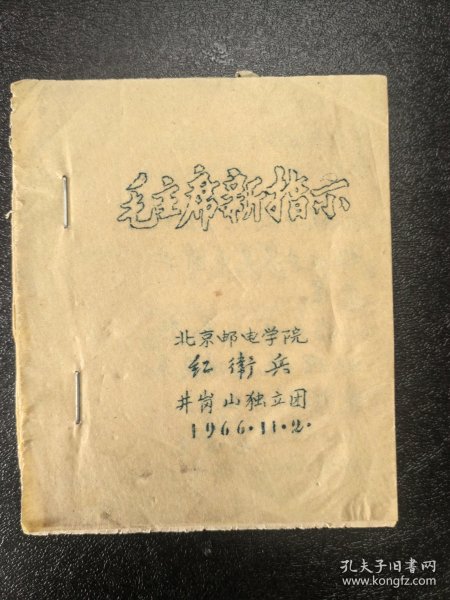 毛主席新指示
北京邮电学院
红衛兵
井岗山独立团
1966·11·2·
孔夫子旧书网
www.kongfz.com